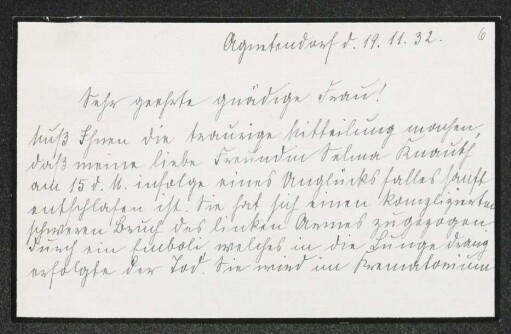 Agnetendorf d. 19. 11. 32.
6
Sehr geehrte gnädige Frau!
Muß Ihnen die traurige Mitteilung machen,
daß meine liebe Freundin Selma Knauth
am 15 d. M. infolge eines Unglücksfalles sanft
entschlafen ist. Sie hat sich einen komplizierten
schweren Bruch des linken Armes zugezogen.
Durch ein Emboli welches in die Lunge drang
erfolgte der Tod. Sie wird im Krematorium